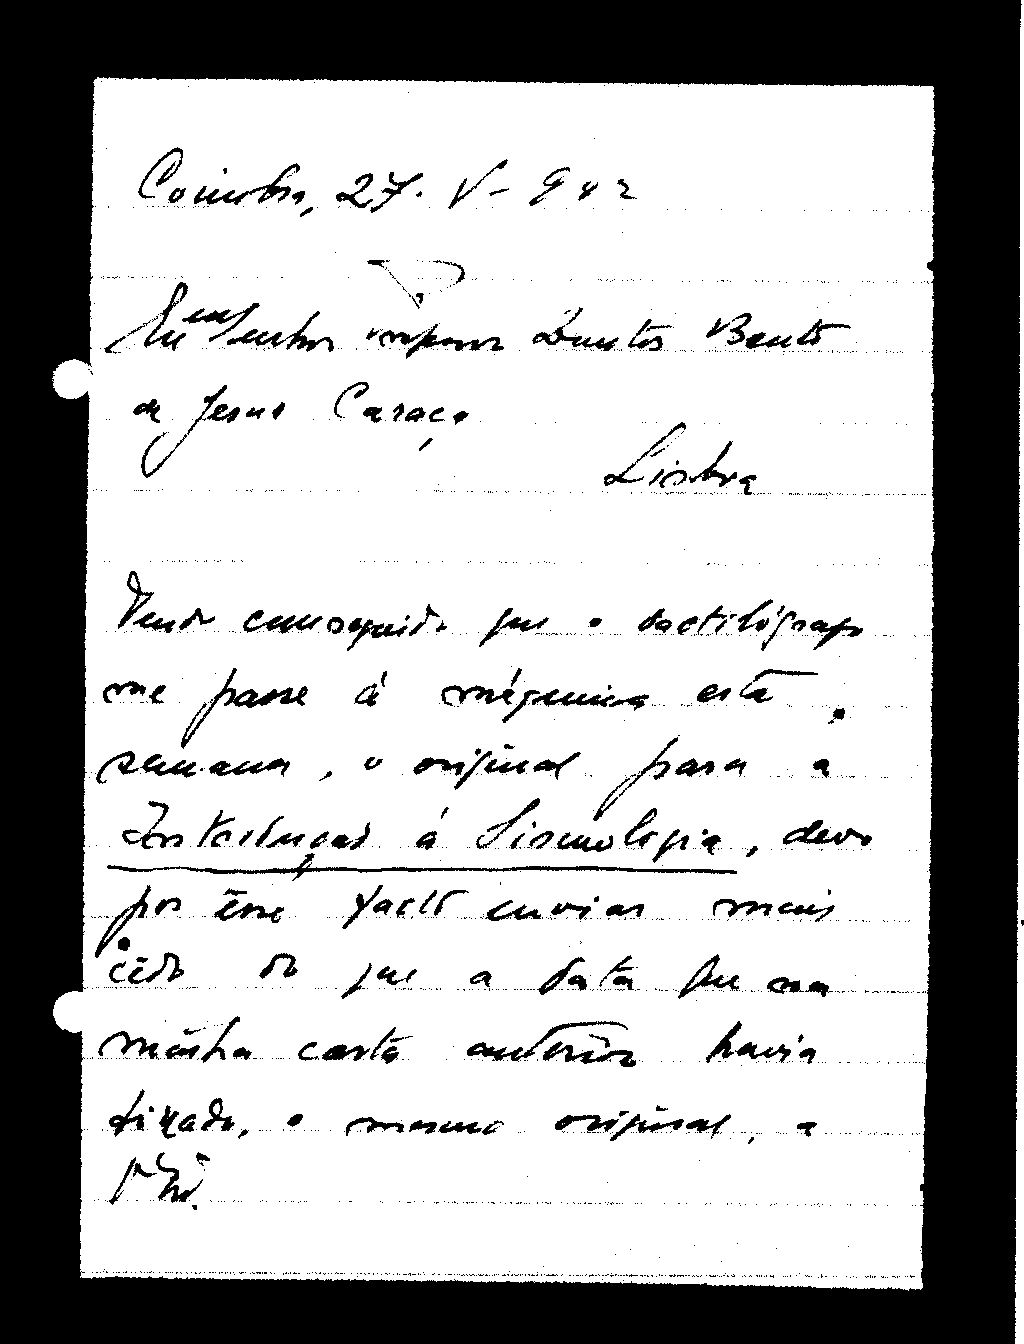 Coimbra, 27. V - 942
Exmo Senhor Professor Doutor Bento
de Jesus Caraça
Lisboa
Tendo conseguido que o dactilógrafo
me passe á máquina esta
semana, o original para a
Introdução á Sismologia, devo
por êsse facto enviar mais
cêdo do que a data que na
minha carta anterior havia
fixado, o mesmo original, a
V. Ex.